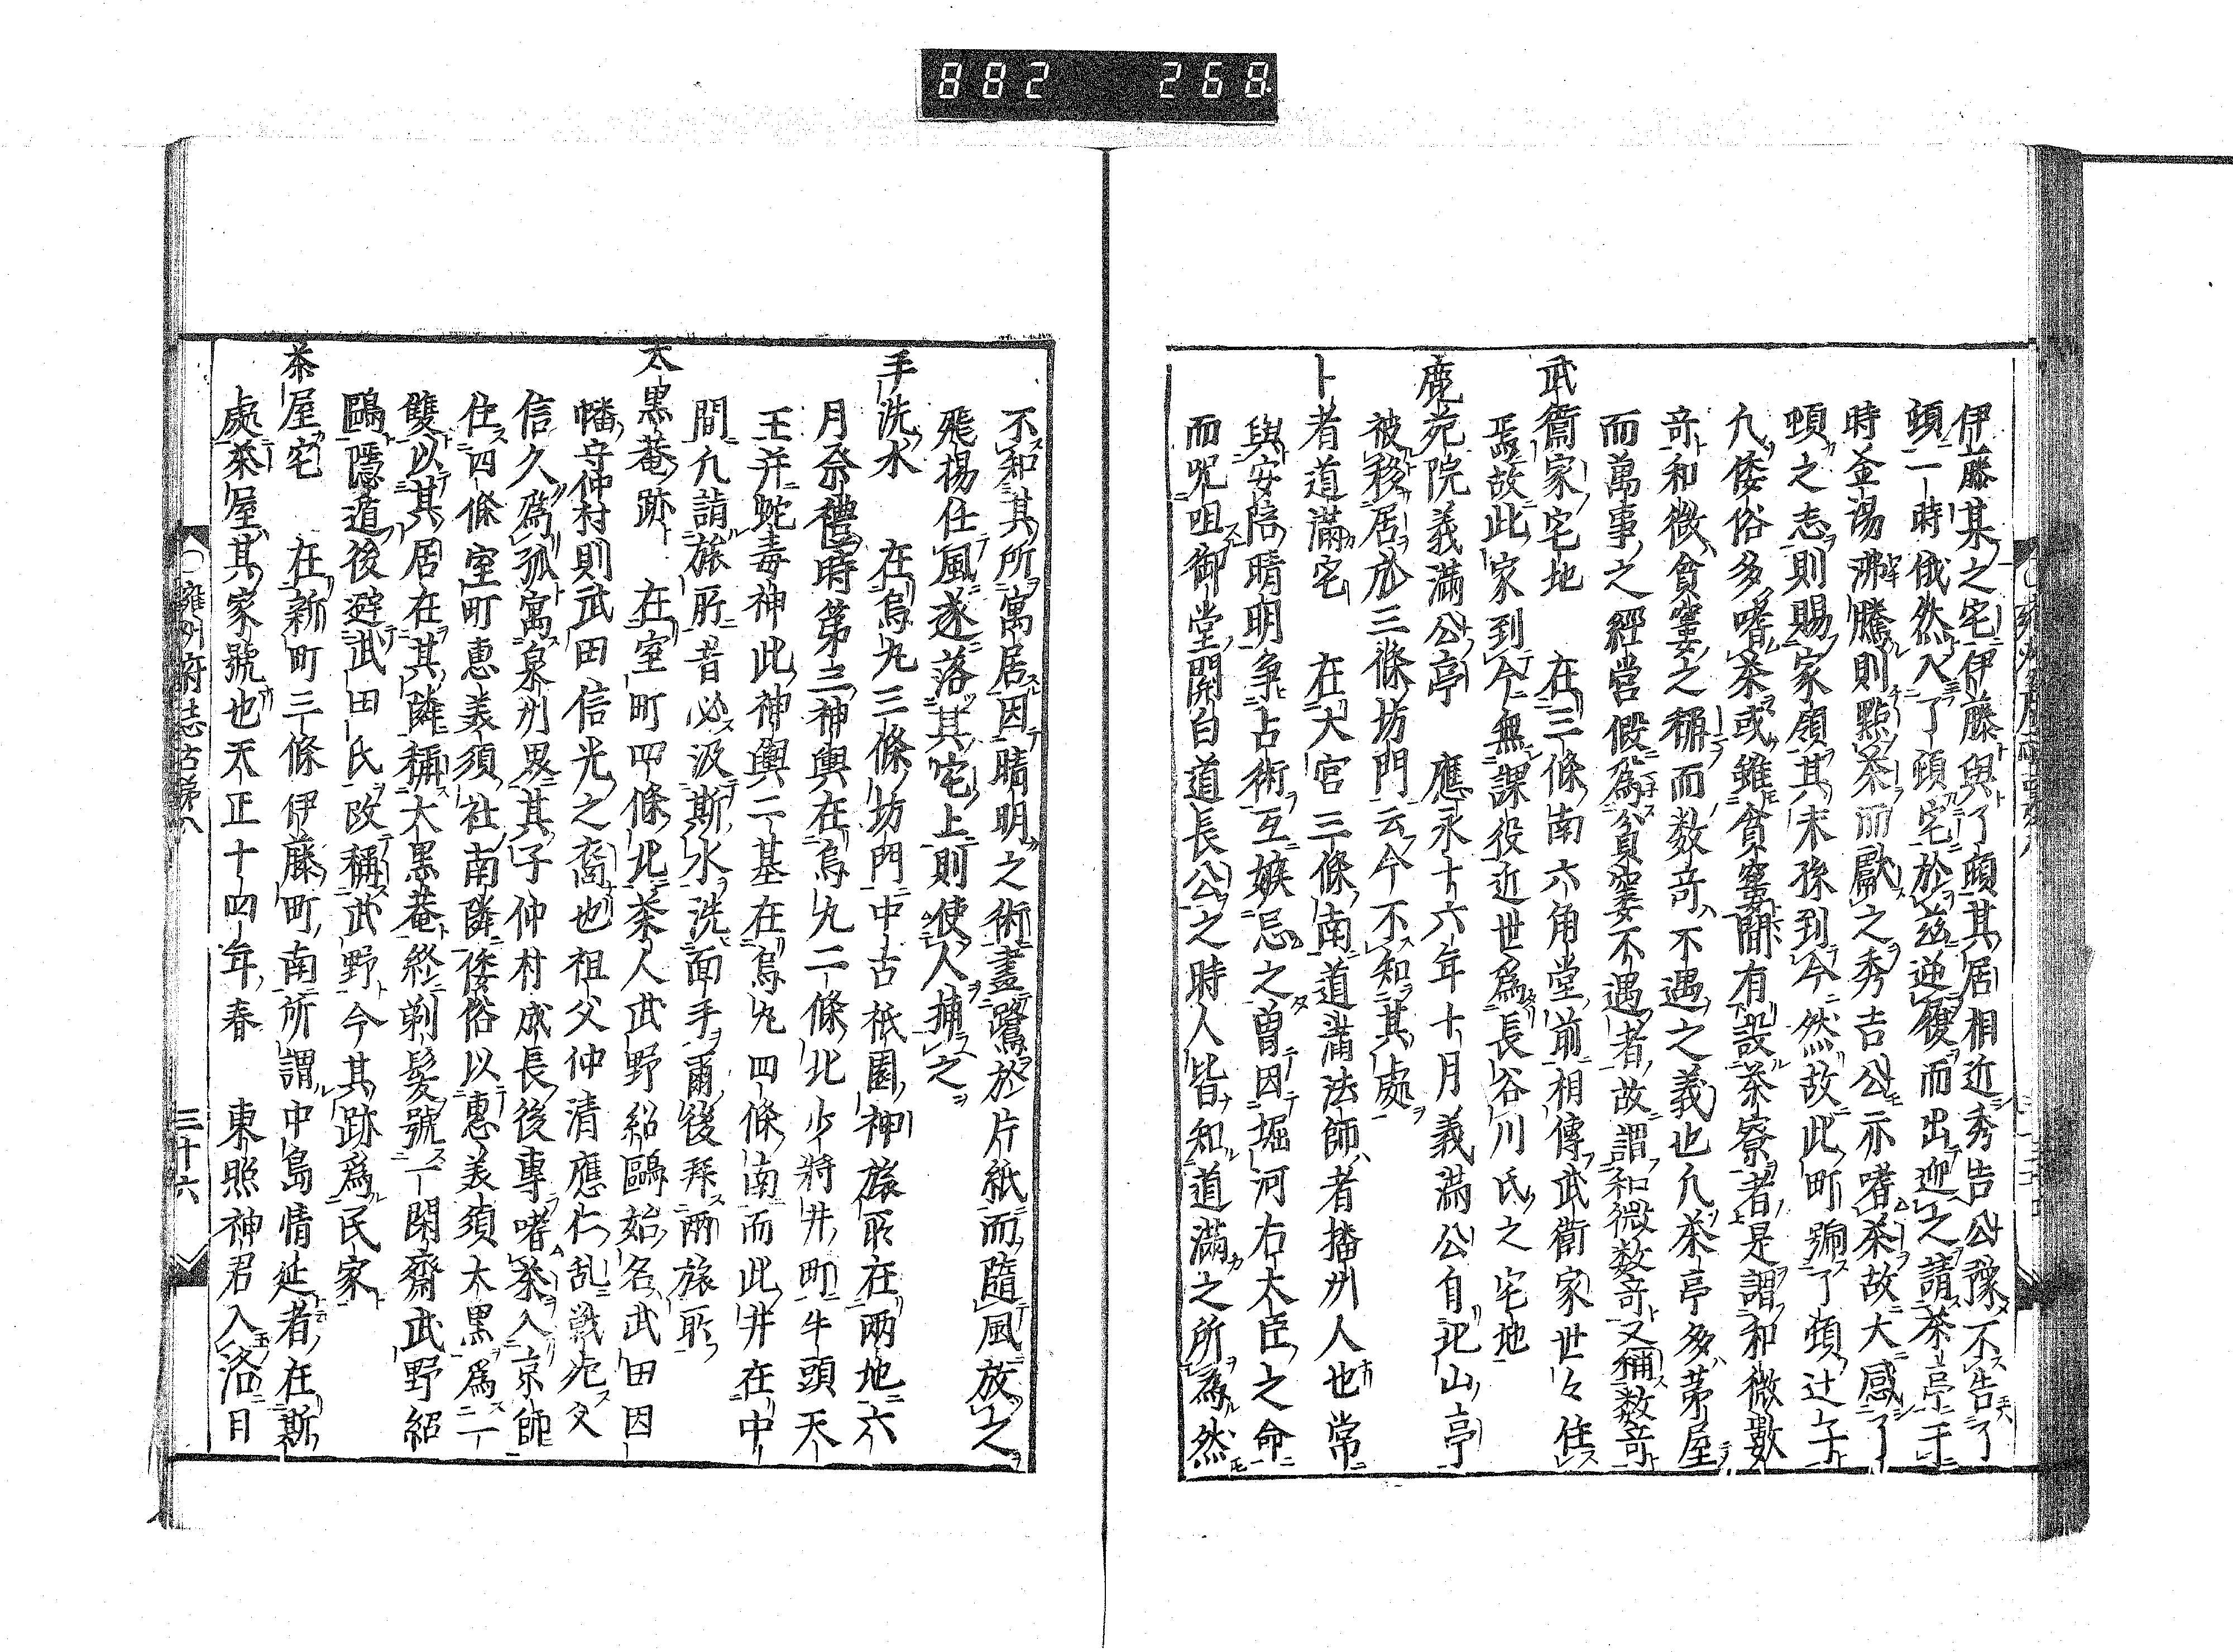 882 268
伊藤某之宅伊藤與了頓其居相近秀吉公豫不告了
頓一時俄然入了頓宅於茲逆履而出迎之請茶亭于
時釜湯沸騰則點茶而獻之秀吉公亦嗜茶故大感了
頓之志則賜家領其末孫到今然故此町號了頓辻子
凡倭俗多嗜茶或雖貧窶間有設茶寮者是謂和微數
奇和微貧窶之稱而数奇不遇之義也凡茶亭多茅屋
而萬事之經営假為貧窶不遇者故謂和微数奇又稱数奇
武衞家宅地 在三條南六角堂前相傳武衛家世々住
焉故此家到今無課役近世為長谷川氏之宅地
鹿苑院義滿公亭 應永十六年十月義満公自北山亭
被移居於三條坊門云今不知其處
卜者道滿宅 在大宮三條南道滿法師者播州人也常
與安陪晴明争占術互嫉忌之曽因堀河右太臣之命
而呪咀御堂關白道長公之時人皆知道滿之所為然
不知其所寓居因晴明之術畫鷺於片紙而隨風放之
飛揚任風遂落其宅上則使人捕之
手洗水 在烏丸三條坊門中古祇園神旅所在兩地六
月祭禮時第三神輿在烏丸二條北少將井町牛頭天
王并蛇毒神此神輿二基在烏丸四條南而此井在中
間凡詣旅所者必汲斯水洗面手爾後拜兩旅所
太黒菴跡 在室町四條北茶人武野紹鷗始名武田因
幡守仲村則武田信光之裔也祖父仲清應仁乱戦死父
信久為孤寓泉州堺其子仲村成長後專嗜茶入京師
住四條室町惠美須社南隣倭俗以惠美須太黒為一
雙以其居在其隣稱大黒菴終剃髪號一閑齋武野紹
鷗隱遁後避武田氏改稱武野今其跡為民家
茶屋宅 在新町三條伊藤町南所謂中島情延者在斯
處茶屋其家號也天正十四年春 東照神君入洛日
雍州府志古跡八
三十六